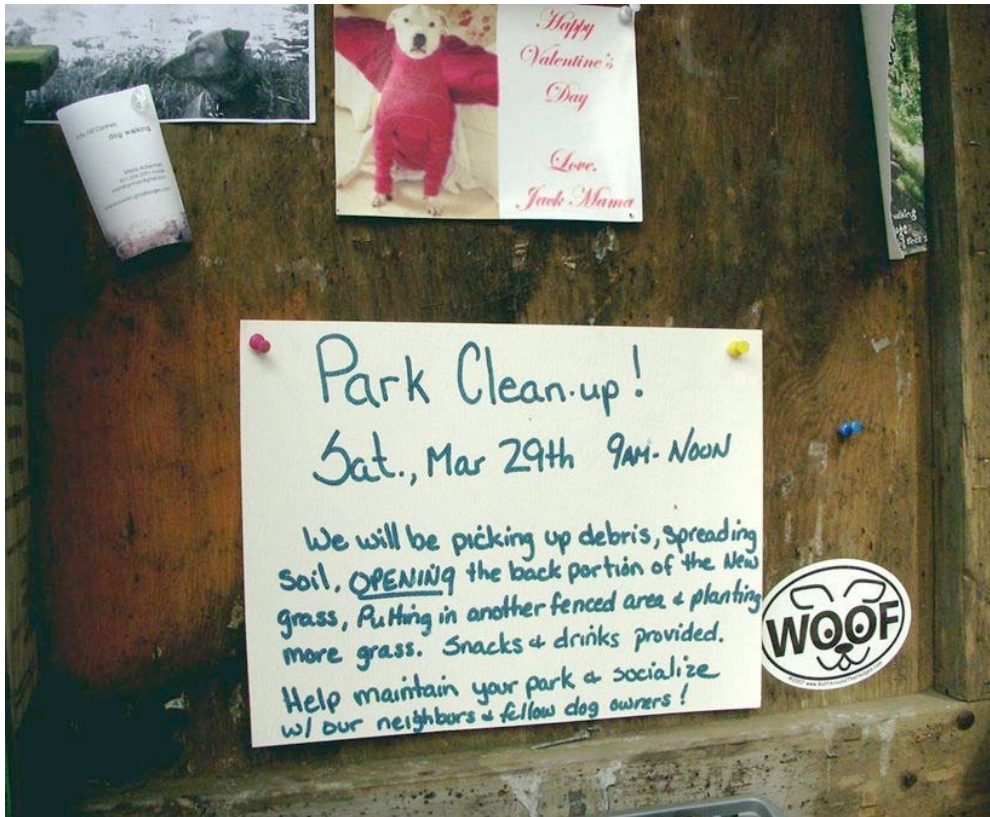 dog walking
Happy
Valentine's
Day
Love,
Jack Mama
Park Clean-up!
Sat., Mar 29th 9AM-NOON
We will be picking up debris, spreading
soil, OPENING the back portion of the New
grass, Putting in another fenced area & planting
more grass. Snacks & drinks provided.
Help maintain your park & socialize
w/ our neighbors & fellow dog owners!
WOOF